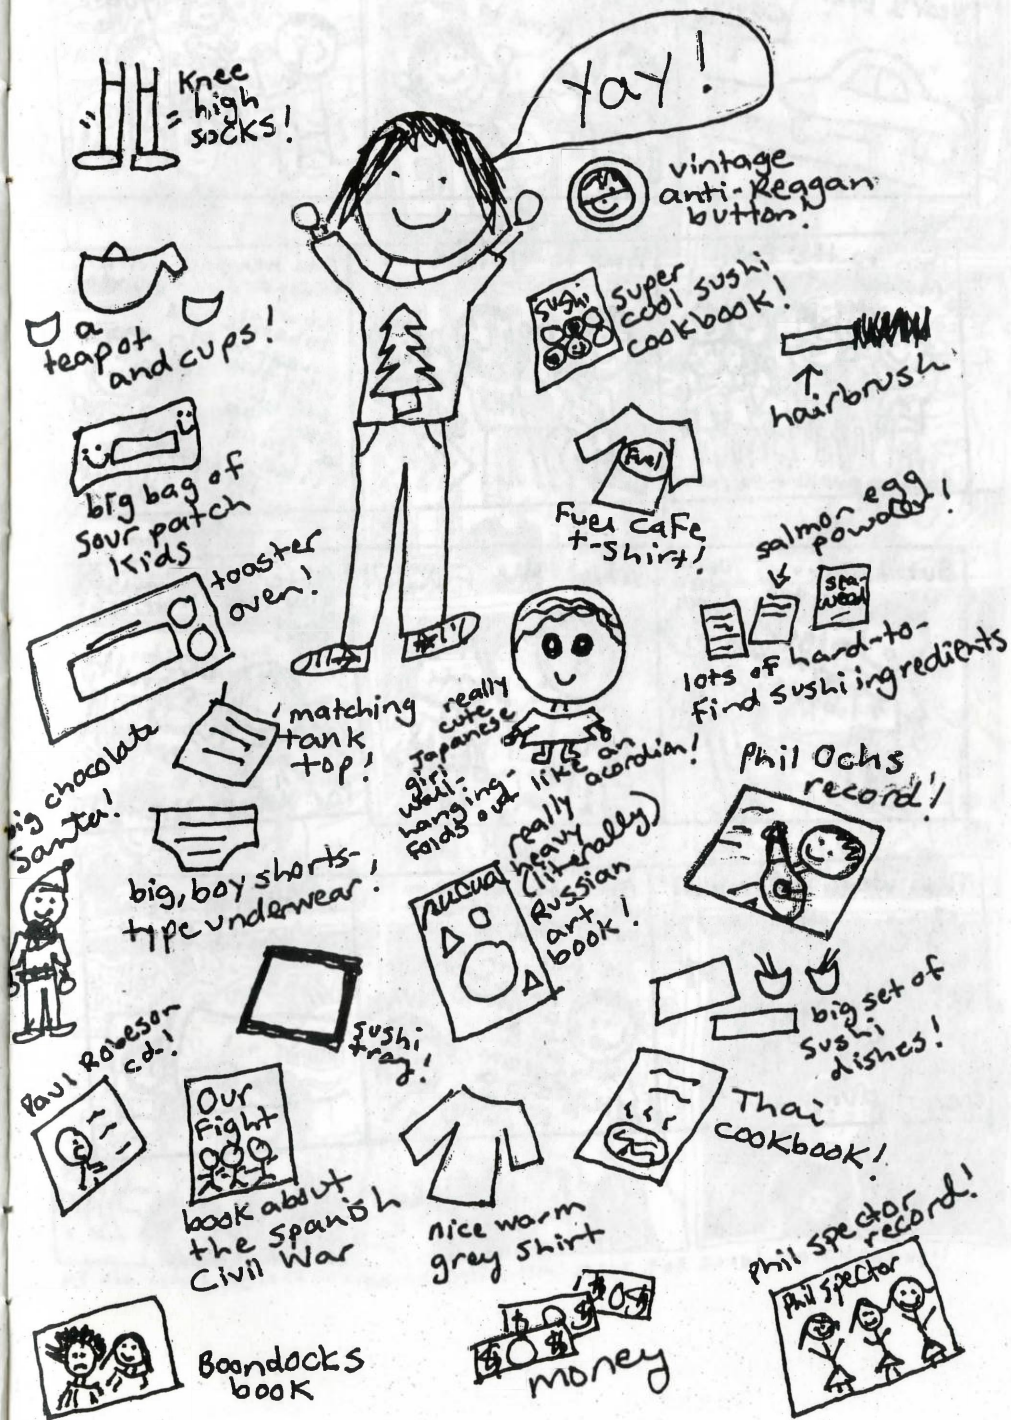 Yay!
Knee
high
socks!
vintage
anti-Reagan
button!
a
teapot
and cups!
Sushi
super
cool sushi
cookbook!
hairbrush
big bag of
sour patch
kids
Fuel
Fuel Cafe
t-shirt!
salmon egg
powder!
sea-
weed
lots of hard-to-
find sushi ingredients
toaster
oven!
matching
tank
top!
really
cute
Japanese
girl
wall-
hanging-
folds out like an
acordian!
Phil Ochs
record!
big chocolate
Santa!
big, boy shorts-
type underwear!
really
heavy
(literally)
Russian
art
book!
sushi
tray!
big set of
sushi
dishes!
Paul Robeson
cd!
Our
Fight
book about
the Spanish
Civil War
nice warm
grey shirt
Thai
cookbook!
Phil Spector
record!
Phil Spector
Boondocks
book
money